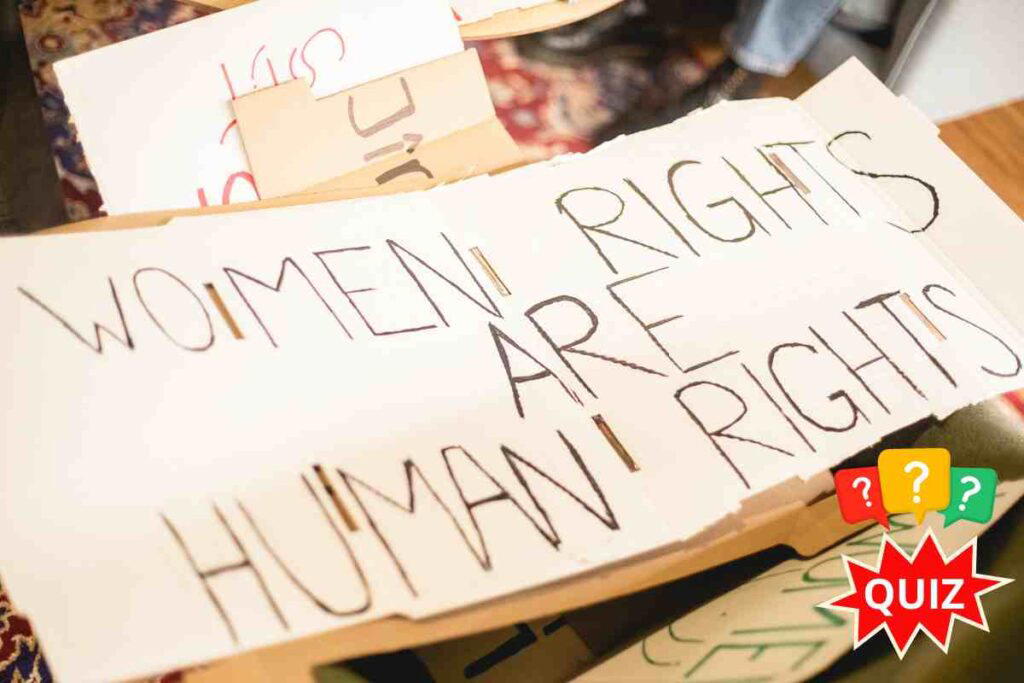 WOMEN RIGHTS
ARE
HUMAN RIGHTS
? ? ?
QUIZ